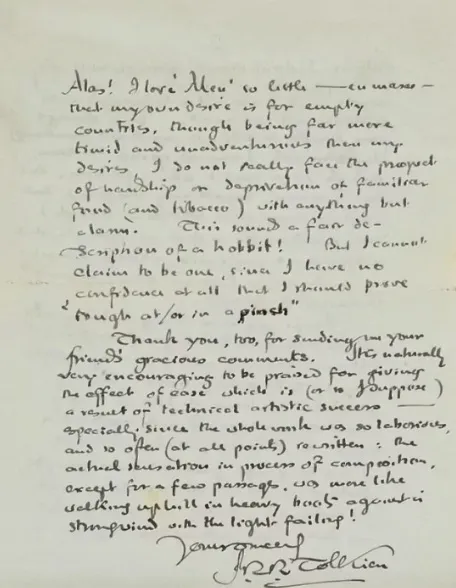 Alas! I love 'Men' so little — en masse —
that my own desire is for empty
countries, though being far more
timid and unadventurous than my
desires, I do not really face the prospect
of hardship or deprivation of familiar
food (and tobacco) with anything but
alarm. This sound a fair de-
scription of a hobbit! But I cannot
claim to be one, since I have no
confidence at all that I should prove
"tough at/or in a pinch"
Thank you, too, for sending me your
friends' gracious comments. It is naturally
very encouraging to be praised for giving
the effect of ease which is (or so I suppose)
a result of technical artistic success —
especially since the whole work was so laborious,
and so often (at all points) rewritten: the
actual sensation in process of composition,
except for a few passages, was more like
walking uphill in heavy boots against a
strong wind with the light failing!
Yours sincerely
J.R.R. Tolkien